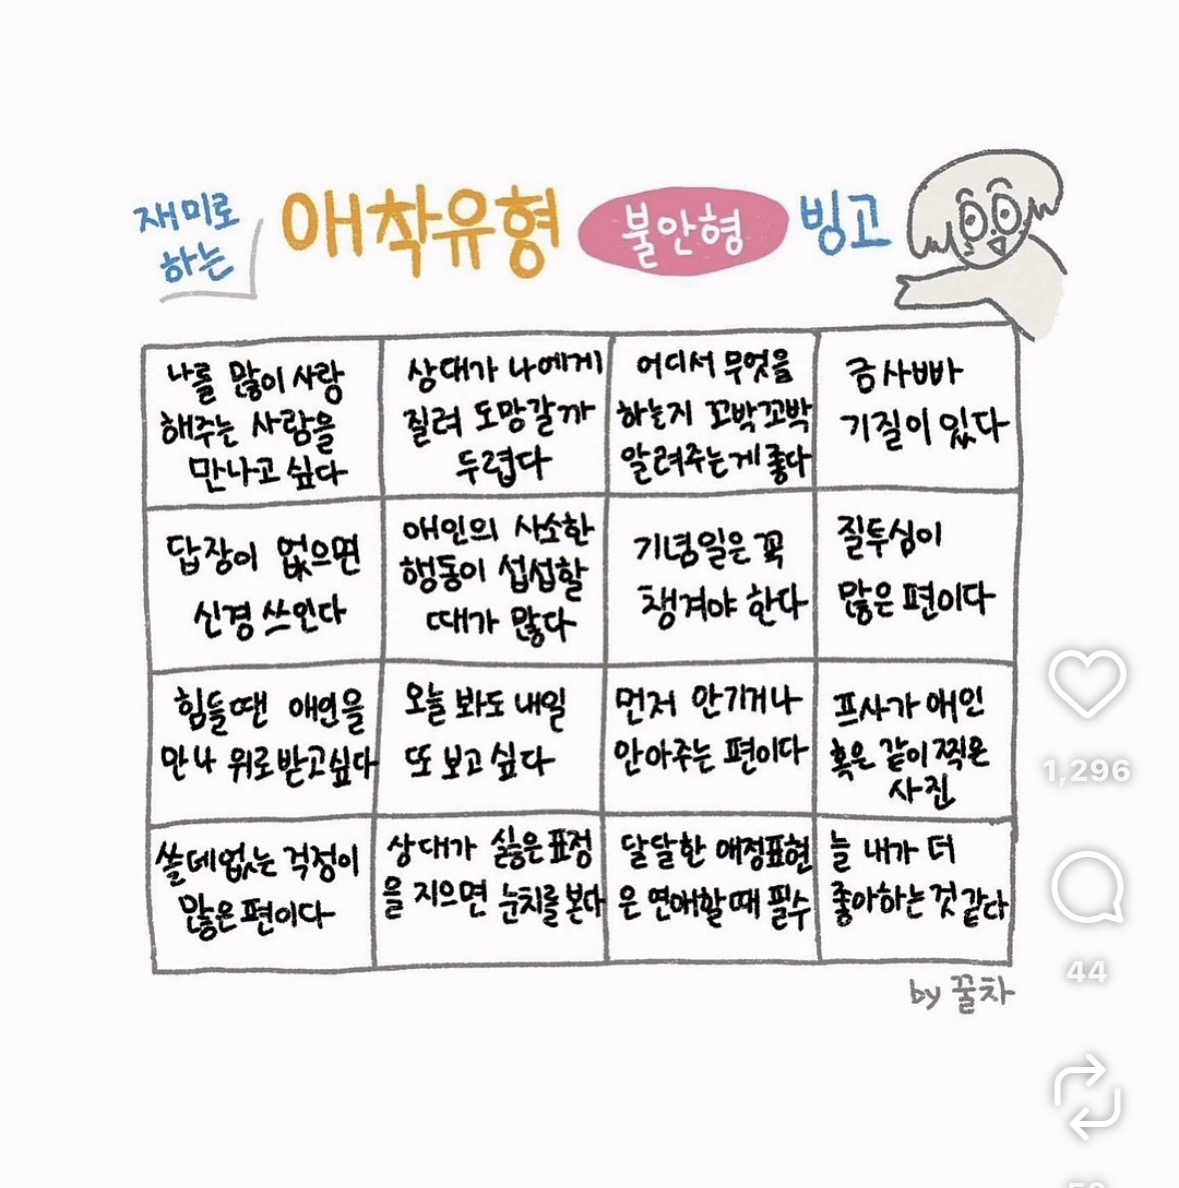 재미로
하는
애착유형 불안형 빙고
나를 많이 사랑
해주는 사람을
만나고 싶다
상대가 나에게
질려 도망갈까
두렵다
어디서 무엇을
하는지 꼬박꼬박
알려주는게 좋다
금사빠
기질이 있다
답장이 없으면
신경 쓰인다
애인의 사소한
행동이 섭섭할
때가 많다
기념일은 꼭
챙겨야 한다
질투심이
많은 편이다
힘들땐 애인을
만나 위로받고싶다
오늘 봐도 내일
또 보고 싶다
먼저 안기거나
안아주는 편이다
프사가 애인
혹은 같이 찍은
사진
쓸데없는 걱정이
많은 편이다
상대가 싫은 표정
을 지으면 눈치를 본다
달달한 애정표현
은 연애할 때 필수
늘 내가 더
좋아하는 것 같다
by 꿀차
1,296
44